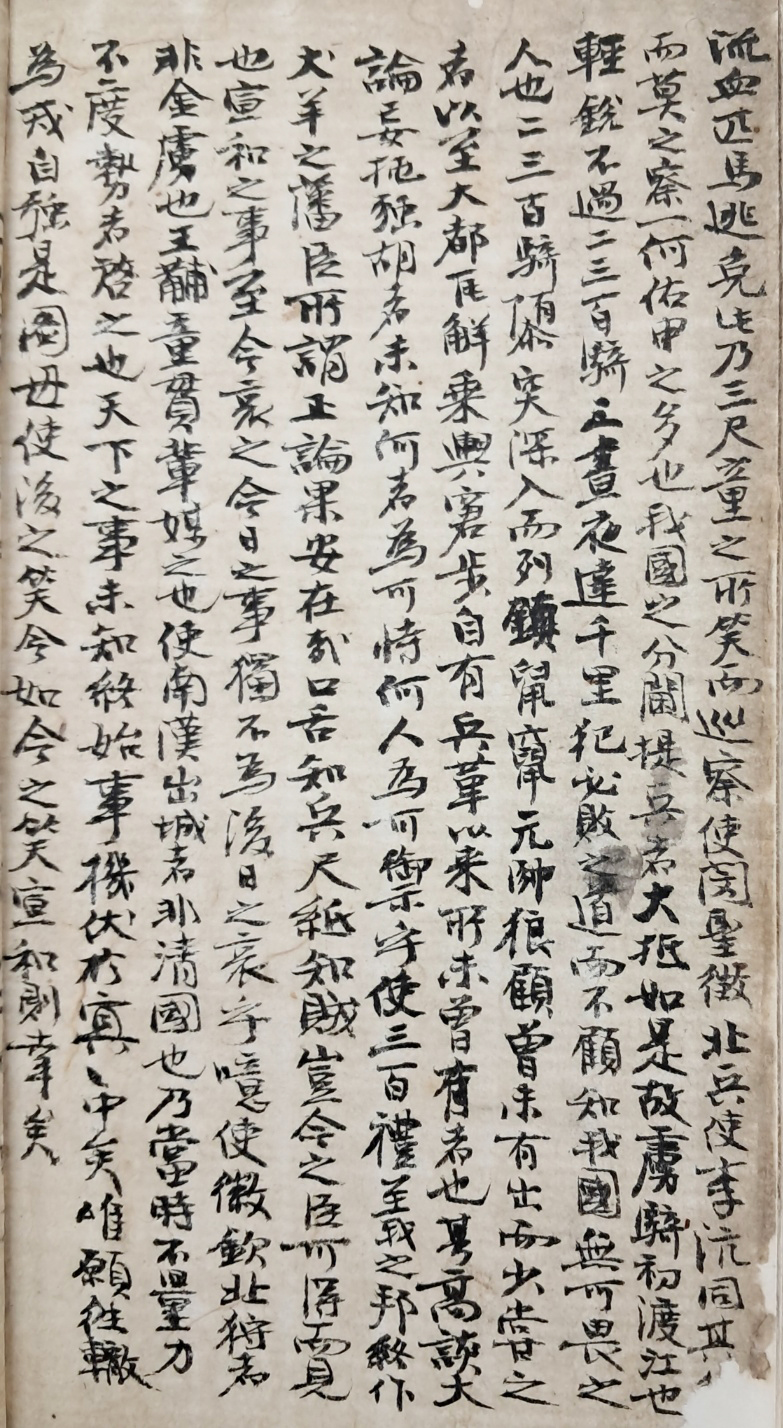 流血匹馬逃竟此乃三尺童之所笑而巡察使閔聖徽北兵使李沆同其
而莫之察一何佑申之多也我國之分閫提兵者大抵如是故虜騎初渡江也
輕銳不過二三百騎正晝夜達千里犯必敗之道而不顧知我國無可畏之
人也二三百騎隳突深入而列鎮鼠竄元帥狼顧曾未有出而少嘗之
者以至大都瓦解乘輿窘步自有兵革以來所未曾有者也其高談大
論妄挑強胡者未知何者為可恃何人為可御示乎使三百禮義之邦終作
犬羊之藩臣所謂正論果安在哉口舌知兵尺紙知賊豈今之臣可得而見
也宣和之事至今哀之今日之事獨不為後日之哀乎噫使徽欽北狩者
非金虜也王黼童貫輩媒之也使南漢出城者非清國也乃當時不量力
不度勢者啓之也天下之事未知終始事機伏於冥〻中矣惟願往轍
為戒自強是圖毋使後之笑今如今之笑宣和則幸矣